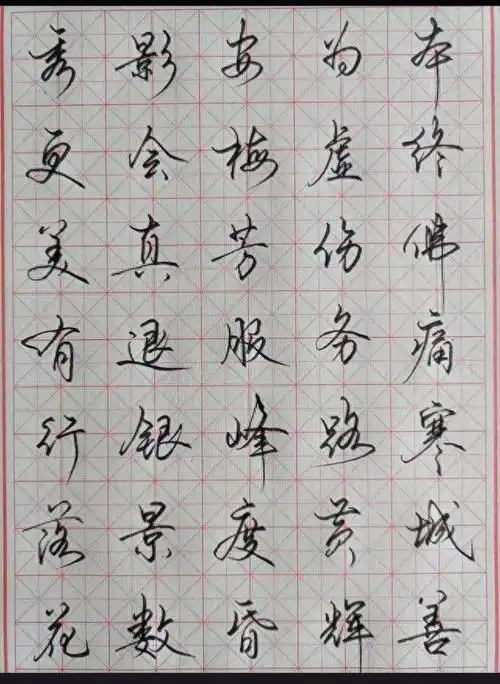 本终佛痛寒城善
为虚伤务路黄辉
安梅芳服峰度昏
影会真退银景数
秀更美有行落花